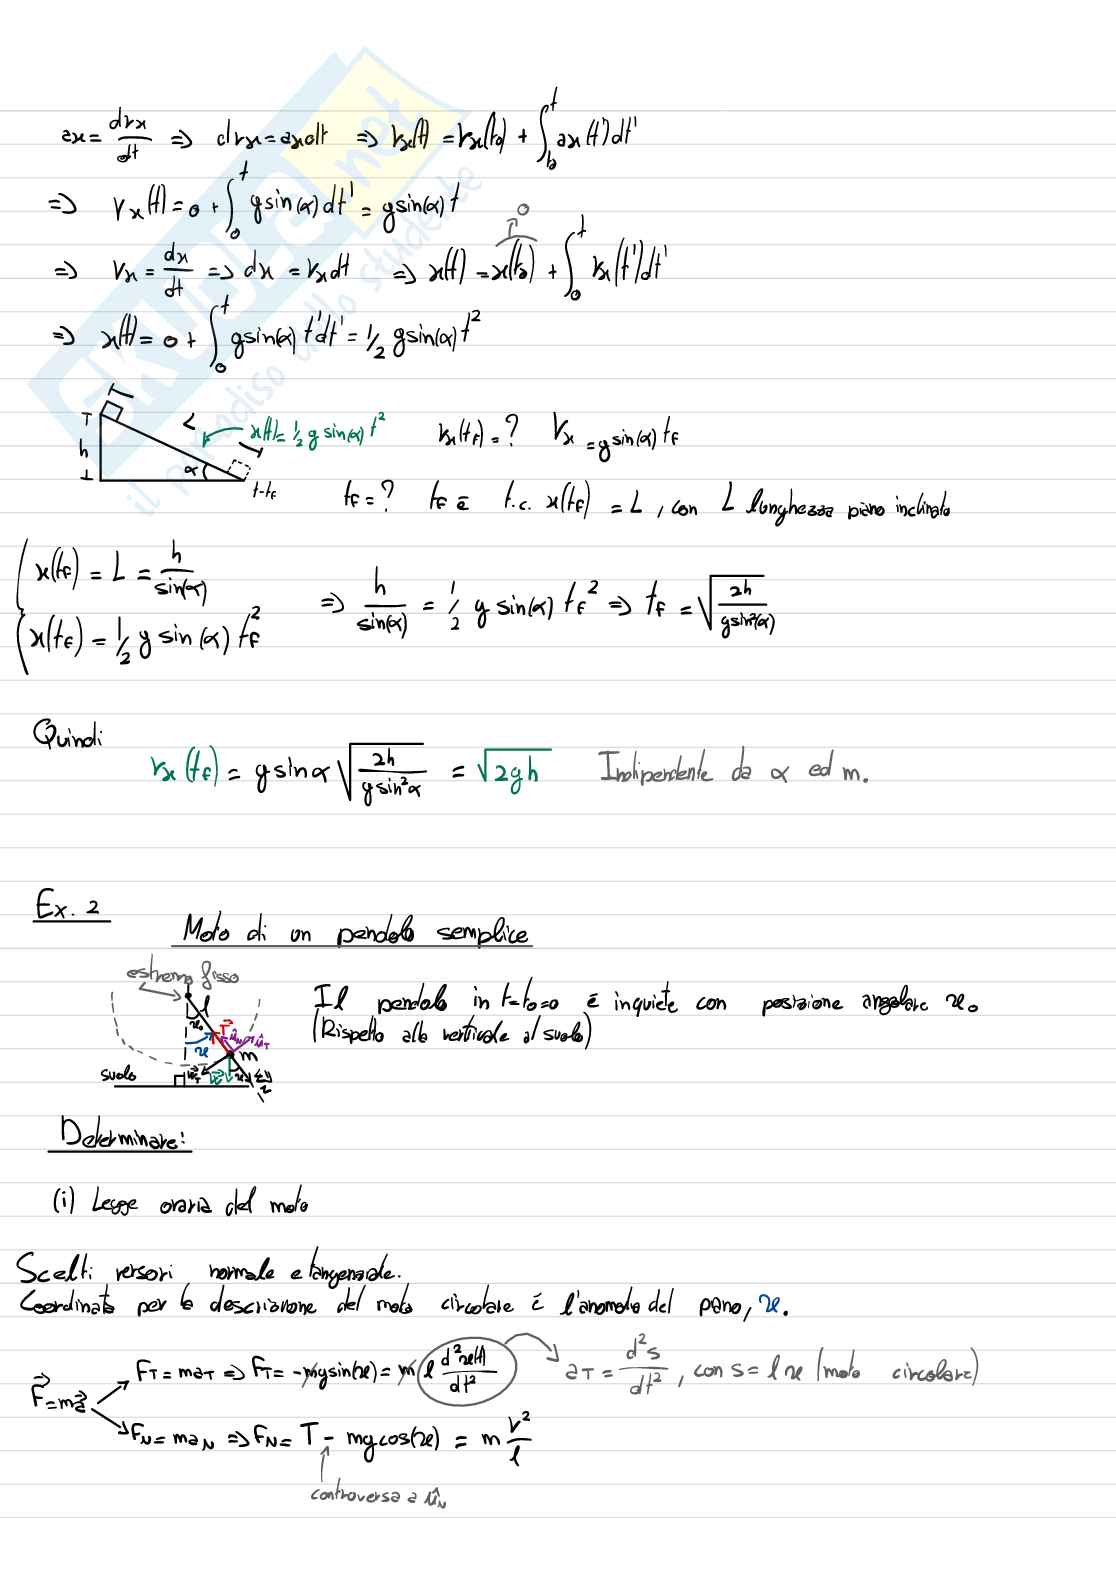 ax = dvx/dt ⇒ dvx = axdt ⇒ vx(t) = vx(t0) + ∫_{t0}^{t} ax(t')dt'
⇒ vx(t) = 0 + ∫_0^t gsin(α)dt' = gsin(α)t
0
⇒ vx = dx/dt ⇒ dx = vxdt ⇒ x(t) = x(t0) + ∫_0^t vx(t')dt'
⇒ x(t) = 0 + ∫_0^t gsin(α)t'dt' = 1/2 gsin(α)t²
L x(t) = 1/2 g sin(α)t² vx(tf) = ? vx = gsin(α)tf
h α t=tf
tf = ? tf è t.c. x(tf) = L, con L lunghezza piano inclinato
x(tf) = L = h/sin(α)
⇒ h/sin(α) = 1/2 g sin(α) tf² ⇒ tf = √(2h/gsin²(α))
x(tf) = 1/2 g sin(α) tf²
Quindi
vx(tf) = gsinα √(2h/gsin²α) = √2gh Indipendente da α ed m.
Ex. 2
Moto di un pendolo semplice
estremo fisso
l
m
suolo
Il pendolo in t=t0=0 é inquiete con posizione angolare ϑ0
(Rispetto alla verticale al suolo)
Determinare:
(i) Legge oraria del moto
Scelti versori normale e tangenziale.
Coordinata per la descrizione del moto circolare é l'anomalia del piano, ϑ.
F⃗=ma⃗
FT = maT ⇒ FT = -mgsin(ϑ) = m l d²ϑ(t)/dt² aT = d²s/dt², con s = lϑ (moto circolare)
FN = maN ⇒ FN = T - mgcos(ϑ) = m v²/l
controversa a ûN